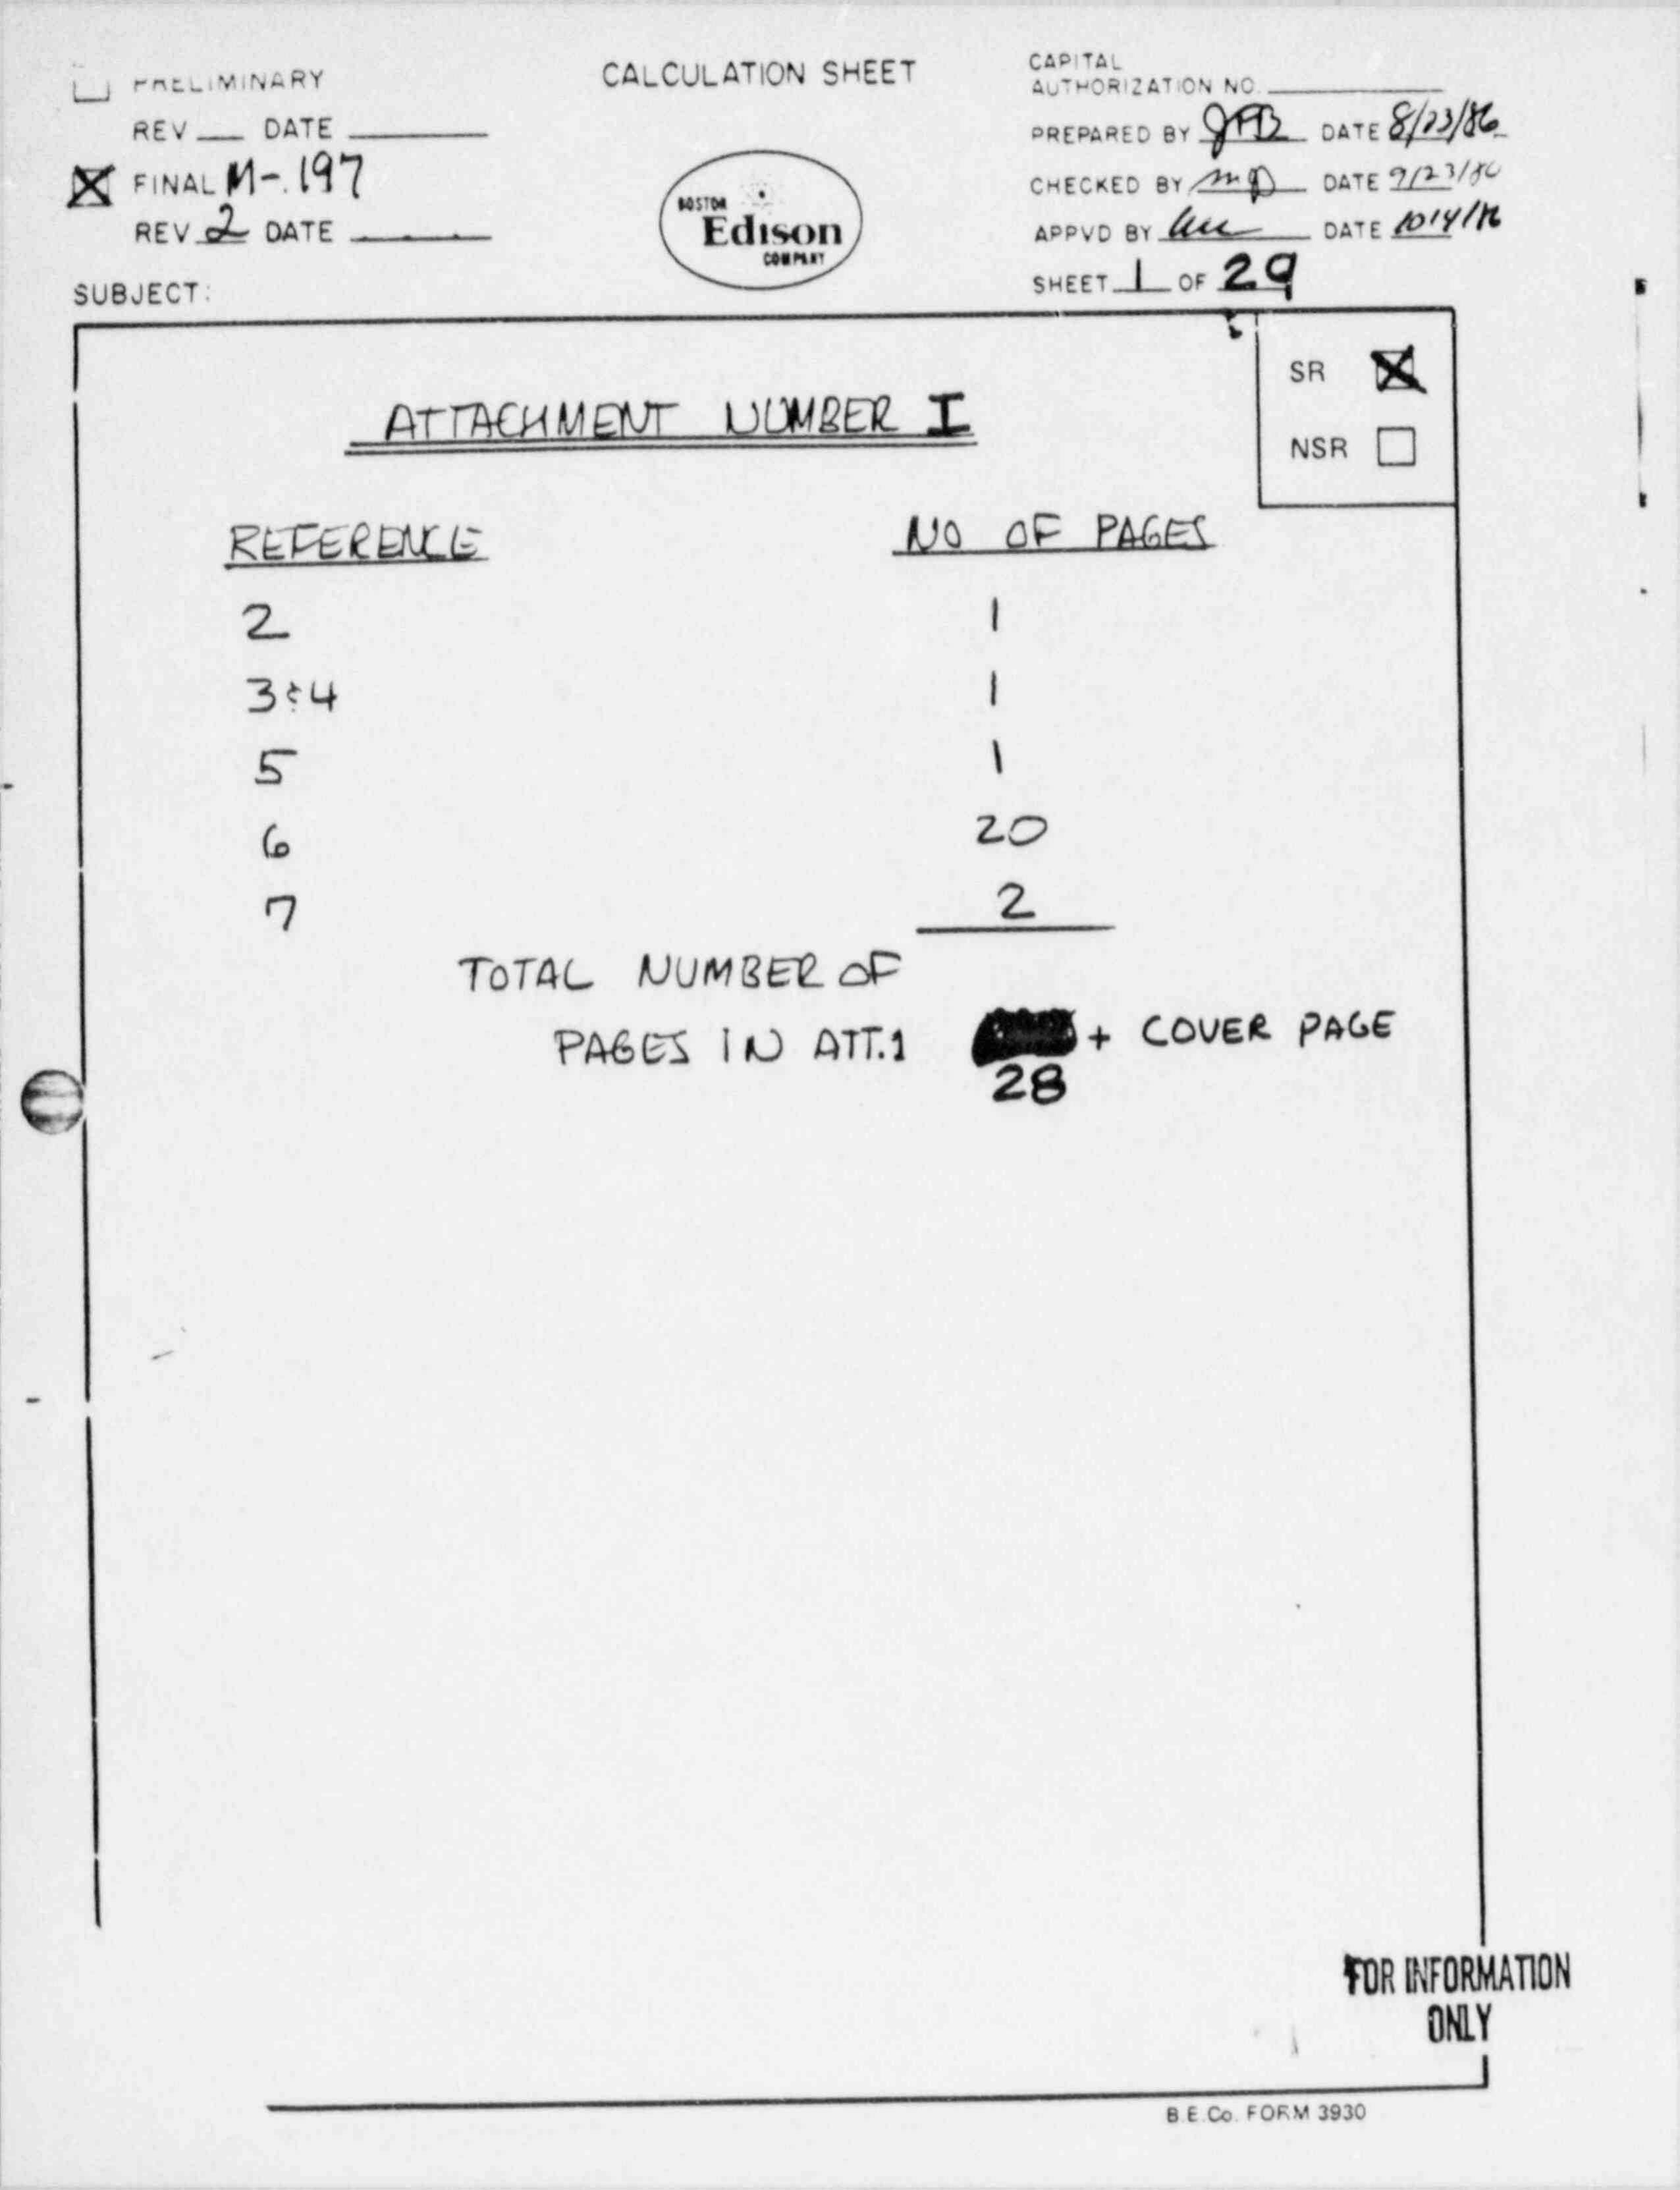 PRELIMINARY
REV DATE
FINAL M-197
REV 2 DATE
SUBJECT:
CALCULATION SHEET
BOSTON
Edison
COMPANY
CAPITAL
AUTHORIZATION NO.
PREPARED BY JFB DATE 8/23/86
CHECKED BY DATE 9/23/86
APPVD BY DATE 10/4/86
SHEET 1 OF 29
SR
NSR
ATTACHMENT NUMBER I
REFERENCE NO OF PAGES
2 1
3 & 4 1
5 1
6 20
7 2
TOTAL NUMBER OF
PAGES IN ATT.1 + COVER PAGE
28
FOR INFORMATION
ONLY
B.E.Co. FORM 3930